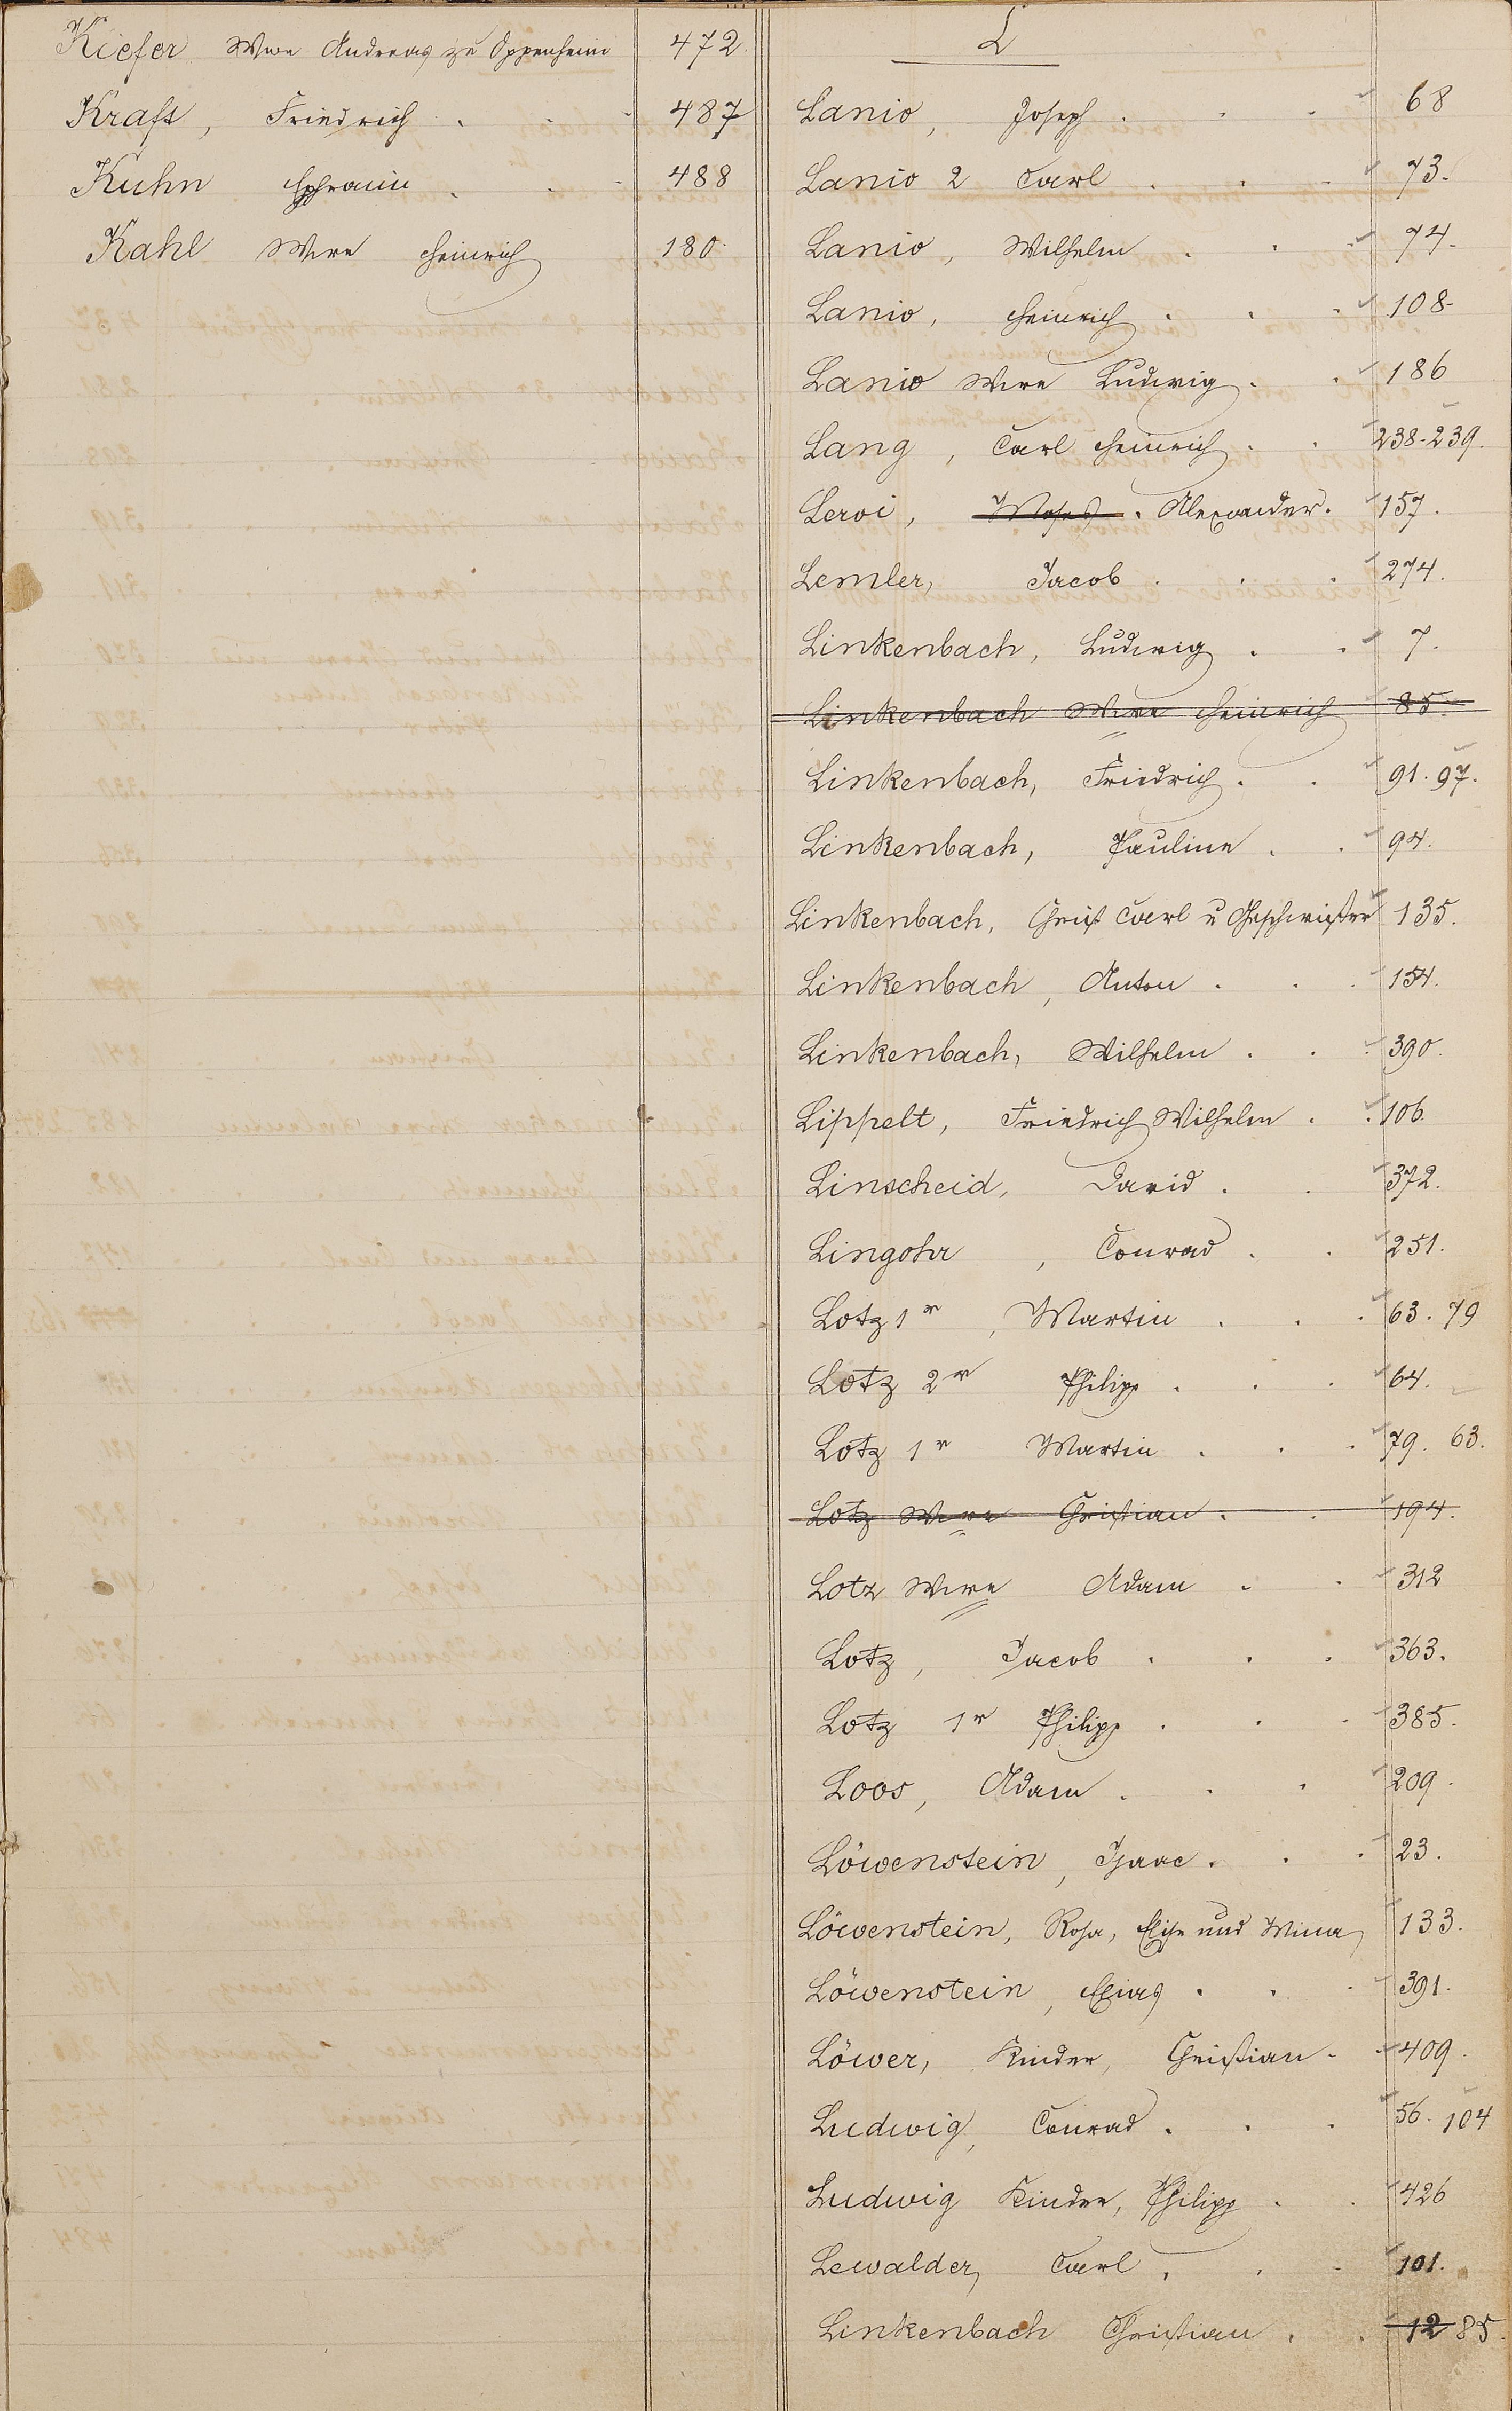 Kiefer Wwe Andreas zu Oppenheim 472.
Kraft, Friedrich . . . 487
Kuhn Ephraim . . . 488
Kahl Wwe Heinrich 180.
L
Lanio, Joseph . . . 68
Lanio 2 Carl . . . 73.
Lanio, Wilhelm . . . 74.
Lanio, Heinrich . . . 108
Lanio Wwe Ludwig . . 186
Lang, Carl Heinrich . . 238-239.
Levi, Moses . Alexander. 157.
Lemler, Jacob . . . 274.
Linkenbach, Ludwig . . 7.
Linkenbach Wwe Heinrich 85.
Linkenbach, Friedrich . . 91. 97.
Linkenbach, Pauline . . 94.
Linkenbach, Christ Carl u Geschwister 135.
Linkenbach, Anton . . . 154.
Linkenbach, Wilhelm . . . 390.
Lippelt, Friedrich Wilhelm . . 106.
Linscheid, David . . 372.
Lingohr, Conrad . . 251.
Lotz 1r, Martin . . . 63. 79
Lotz 2r Philipp . . . 64.
Lotz 1r Martin . . . 79. 63.
Lotz Wwe Christian . . 194.
Lotz Wwe Adam . . 312
Lotz, Jacob . . . 363.
Lotz 1r Philipp . . . 385.
Loos, Adam . . . 209.
Löwenstein, Isaac . . . 23.
Löwenstein, Rosa, Elise und Mina 133.
Löwenstein, Elias . . . 391.
Löwer, Kinder, Christian . . 409.
Ludwig, Conrad . . . 56. 104
Ludwig Kinder, Philipp . . 426
Lewalder, Carl . . . 101.
Linkenbach Christian . . 12 85.